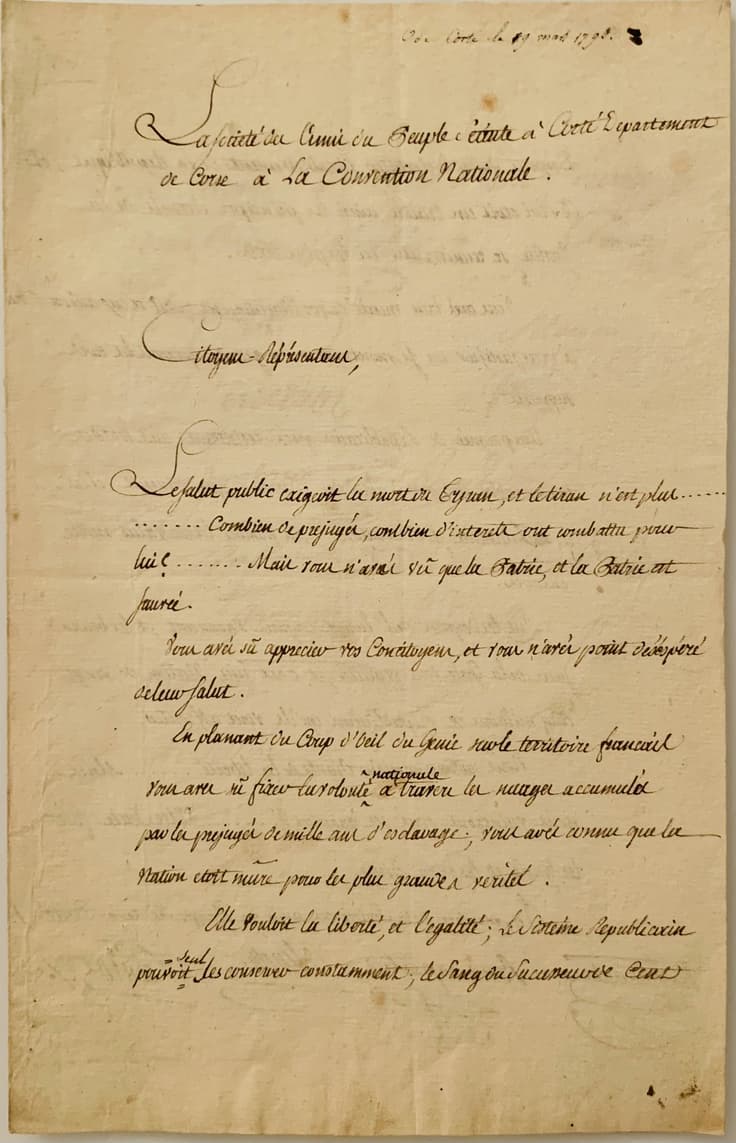 Corte le 19 mars 1793.
La societé des Amis du Peuple séante à Corté Departement
de Corse à La Convention Nationale.
Citoyens-Représentans,
Le salut public exigeoit la mort du Tyran, et le tiran n'est plus......
....... Combien de prejugés, combien d'interets ont combattu pour
lui! ....... Mais vous n'avés vû que la Patrie, et la Patrie est
sauvée.
Vous avés sû apprecier vos Concitoyens, et vous n'avés point désésperé
de leur salut.
En planant du Coup d'Oeil du Genie sur le territoire francais
vous aves sû fixer la volonté nationale à travers les nuages accumulés
par les prejugés de mille ans d'esclavage; vous avés connu que la
Nation etoit mûre pour les plus grandes verités.
Elle vouloit la liberté, et l'égalité; Le Sistéme Republicain
pouvoit seul les conserver constamment; le Sang du Successeur de Cent